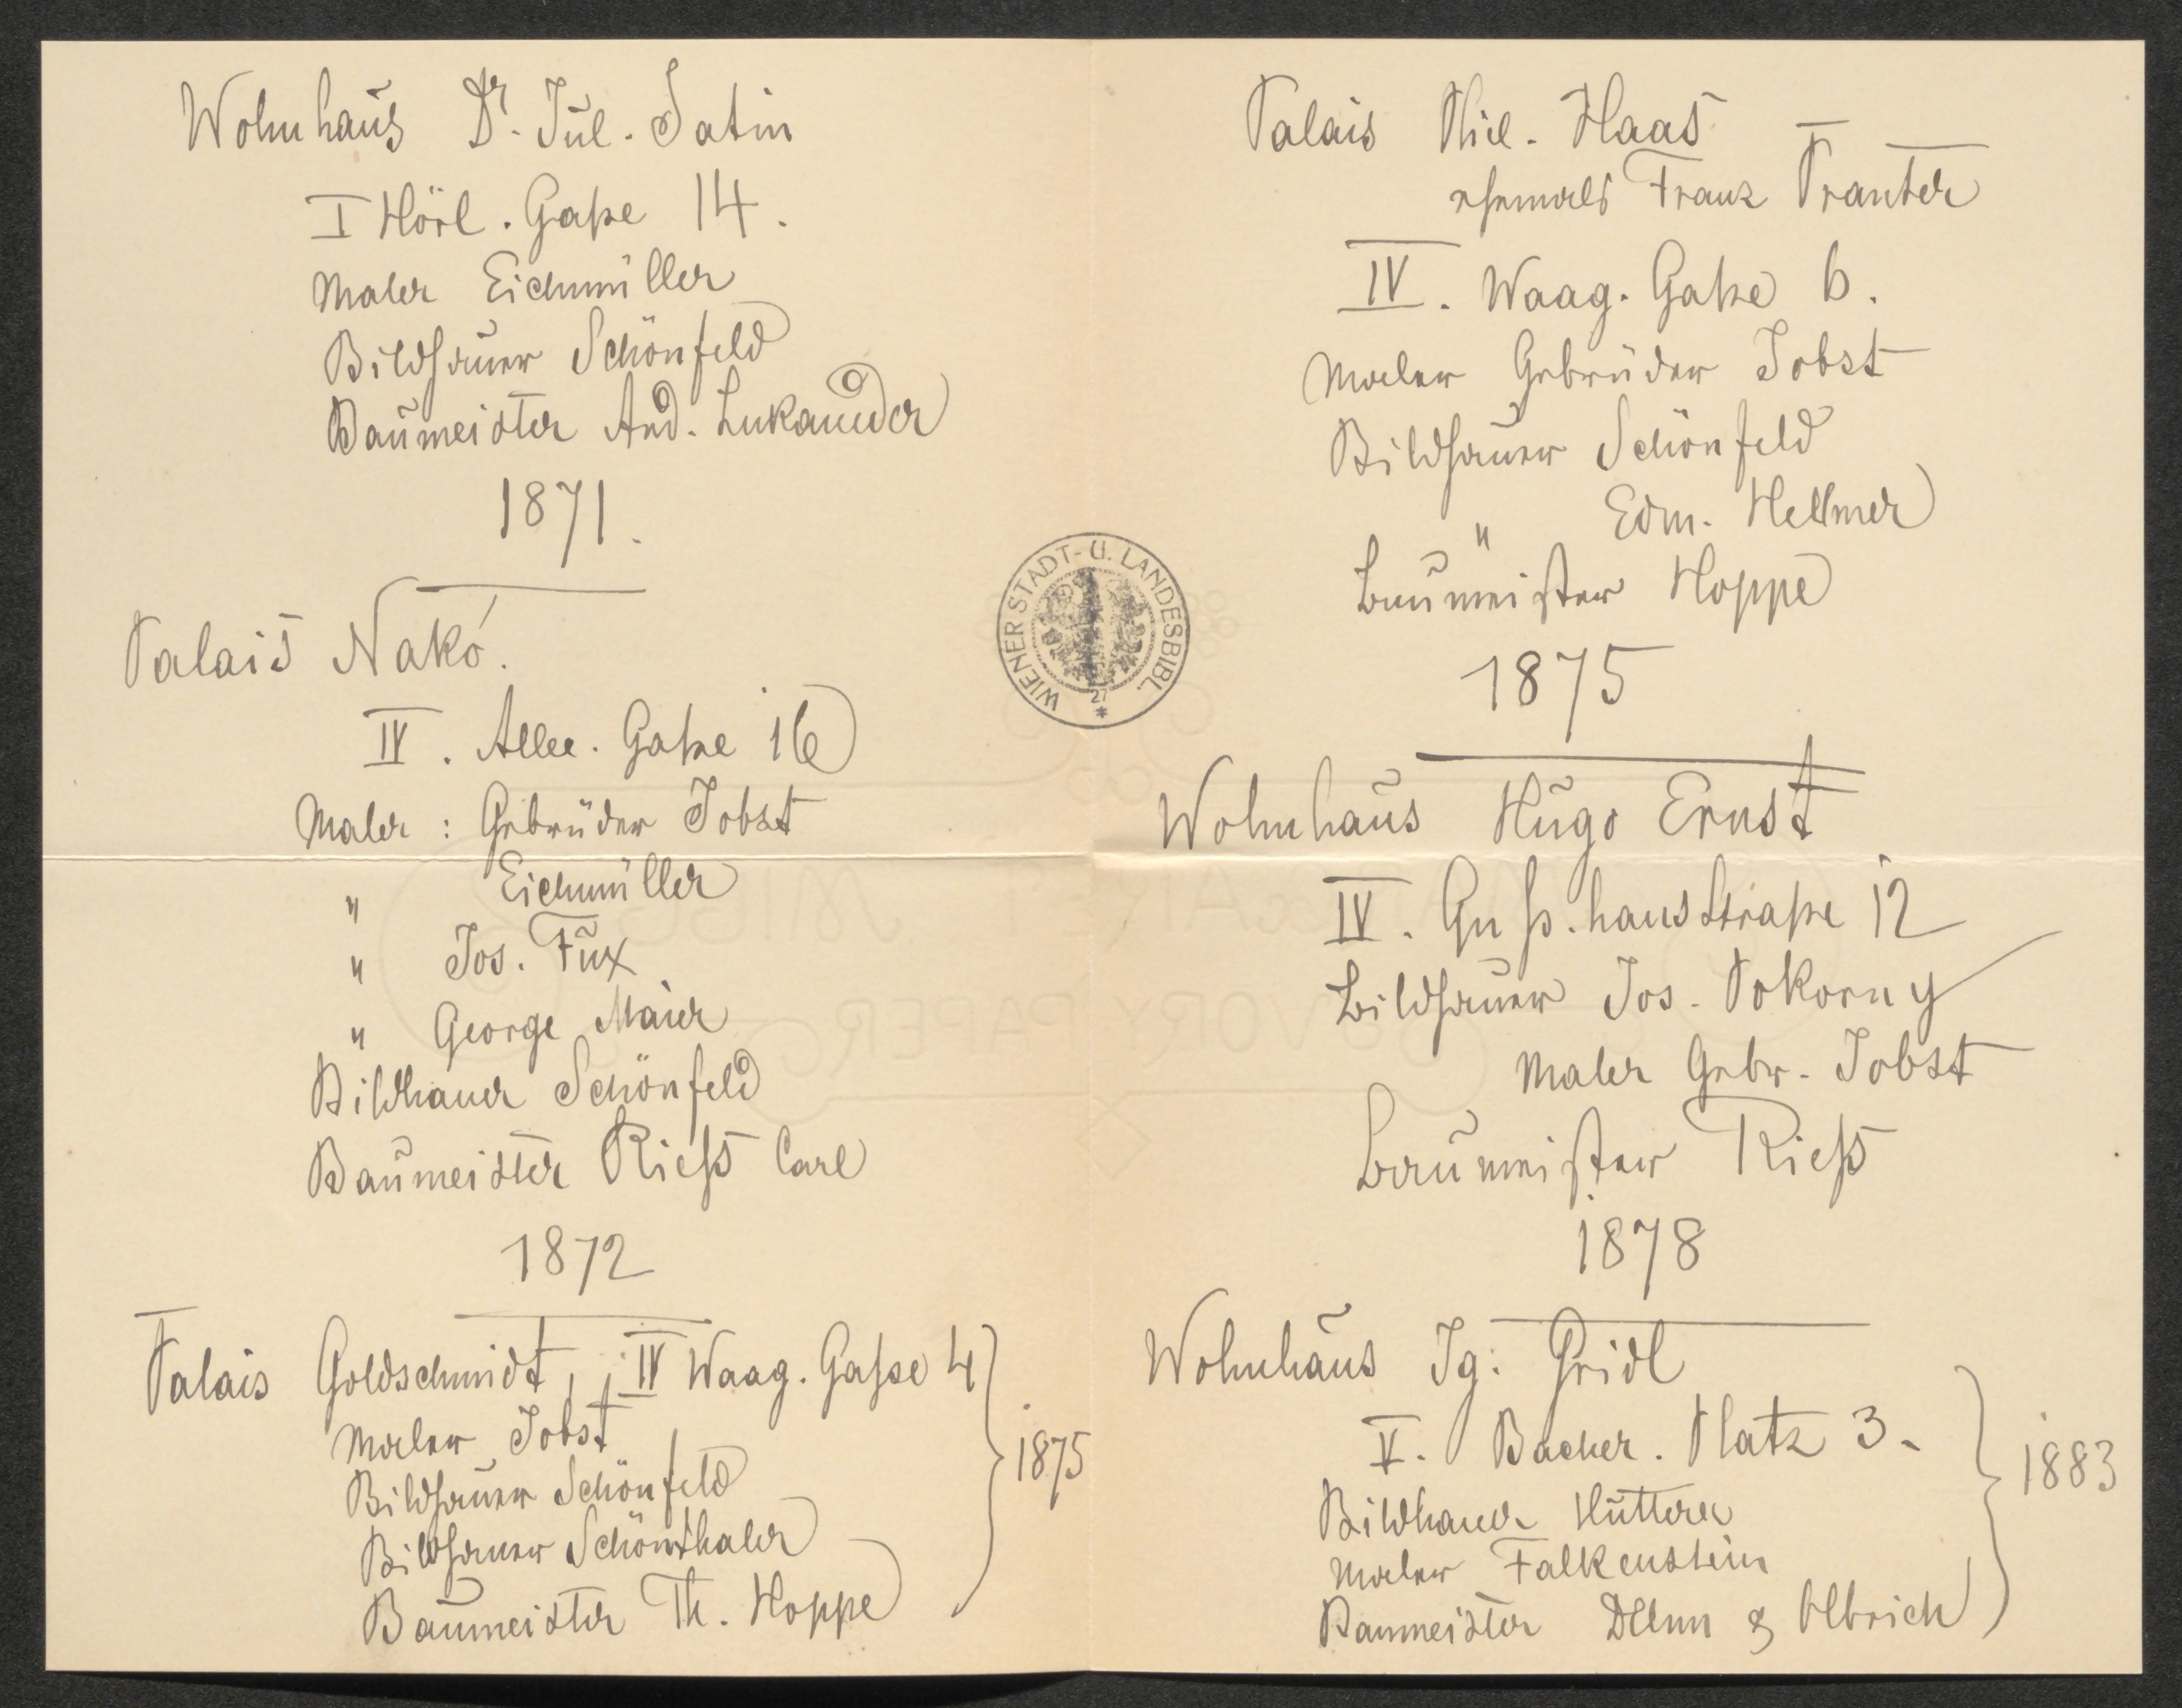 Wohnhaus Dr. Jul. Satin
I Hörl. Gaße 14.
Maler Eichmüller
Bildhauer Schönfeld
Baumeister And. Lukaneder
1871.
Palais Nakó.
IV. Allee. Gaße 16
Maler: Gebrüder Jobst
" Eichmüller
" Jos. Fux
" George Maier
Bildhauer Schönfeld
Baumeister Rieß Carl
1872
Palais Goldschmidt, IV Waag. Gaße 4
Maler Jobst
Bildhauer Schönfeld
Bildhauer Schönthaler
Baumeister Th. Hoppe
1875
Palais Haas
ehemals Franz Pranter
IV. Waag. Gaße 6.
Maler Gebrüder Jobst
Bildhauer Schönfeld
" Edm. Hellmer
Baumeister Hoppe
1875
Wohnhaus Hugo Ernst
IV. Guß.hausstraße 12
Bildhauer Jos. Pokorny
Maler Gebr. Jobst
Baumeister Rieß
1878
Wohnhaus Ig: Gridl
V. Bacher. Platz 3.
Bildhauer Hutterer
Maler Falkenstein
Baumeister & Olbrich
1883
WIENER STADT- U. LANDESBIBL.
27
IVORY PAPER